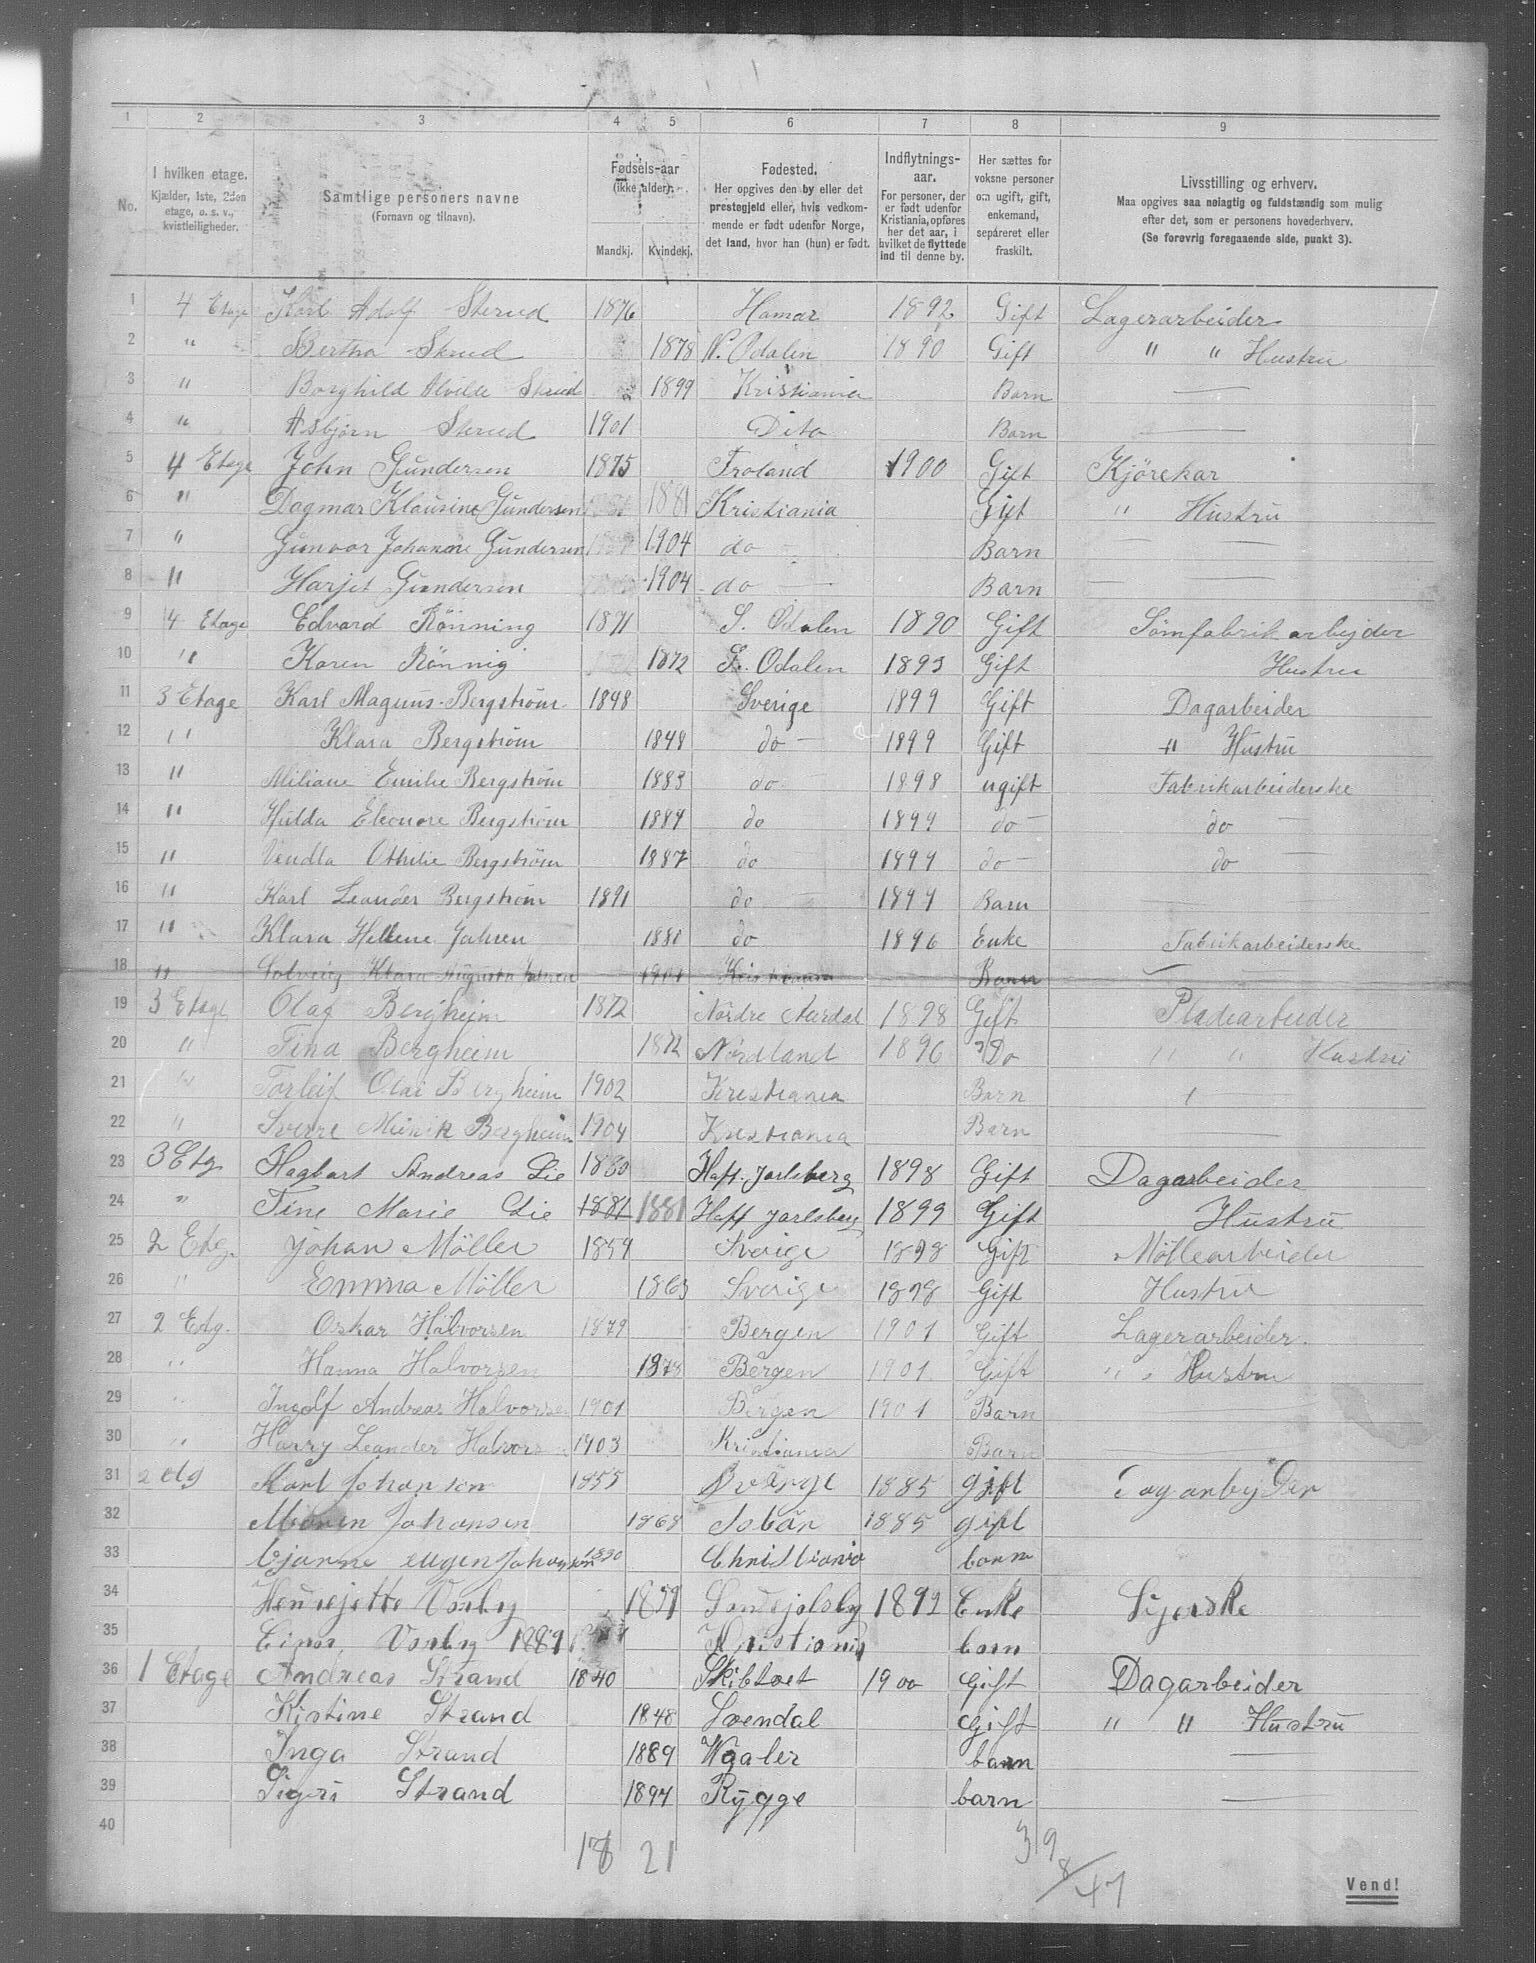 1 2 3 4 5 6 7 8 9
No. I hvilken etage. Kjælder, 1ste, 2den etage, o. s. v., kvistleiligheder. Samtlige personers navne (Fornavn og tilnavn). Fødsels-aar (ikke alder). Mandkj. Kvindekj. Fødested. Her opgives den by eller det prestegjeld eller, hvis vedkommende er født udenfor Norge, det land, hvor han (hun) er født. Indflytnings-aar. For personer, der er født udenfor Kristiania, opføres her det aar, i hvilket de flyttede ind til denne by. Her sættes for voksne personer om ugift, gift, enkemand, separeret eller fraskilt. Livsstilling og erhverv. Maa opgives saa nøiagtig og fuldstændig som mulig efter det, som er personens hovederhverv. (Se forøvrig foregaaende side, punkt 3).
1 4 Etage Karl Adolf Skrud 1876 Hamar 1892 Gift Lagerarbeider
2 " Bertha Skrud 1878 N. Odalen 1890 Gift " " Hustru
3 " Borghild Alvilde Skrud 1899 Kristiania Barn —
4 " Asbjørn Skrud 1901 Dito Barn —
5 4 Etage John Gundersen 1875 Froland 1900 Gift Kjörekar
6 " Dagmar Klausine Gundersen 1881 Kristiania Gift " Hustru
7 " Gunvor Johanne Gundersen 1904 do — Barn — —
8 " Harjet Gundersen 1904 do — Barn —
9 4 Etage Edvard Rönning 1871 S. Odalen 1890 Gift Sömfabrik arbejder
10 " Karen Rönnig 1872 S. Odalen 1893 Gift Hustru
11 3 Etage Karl Magnus Bergström 1848 Sverige 1899 Gift Dagarbeider
12 " Klara Bergström 1848 do — 1899 Gift " Hustru
13 " Miliane Emilie Bergström 1883 do 1898 ugift Fabrikarbeiderske
14 " Hulda Eleonore Bergström 1884 do 1899 do — do —
15 " Vendla Othilie Bergström 1887 do 1899 do — do —
16 " Karl Leander Bergström 1891 do — 1899 Barn
17 " Klara Hellene Jahren 1880 do 1896 Enke Fabrikarbeiderske
18 " Solveig Klara Augusta Jahren 1901 Kristiania Barn —
19 3 Etage Olaf Bergheim 1872 Nordre Aurdal 1898 Gift Pladearbeider
20 " Tina Bergheim 1872 Nordland 1896 Do " " Hustru
21 " Torleif Olai Bergheim 1902 Kristiania Barn —
22 " Sverre Minik Bergheim 1904 Kristiania Barn —
23 3 Etg Hagbart Andreas Lie 1880 Haft. Jarlsberg 1898 Gift Dagarbeider
24 " Tine Marie Lie 1881 1881 Haff Jarlsberg 1899 Gift Hustru
25 2 Etg. Johan Möller 1859 Sverige 1898 Gift Möllearbeider
26 " Emma Möller 1863 Sverige 1898 Gift Hustru
27 2 Etg. Oskar Halvorsen 1879 Bergen 1901 Gift Lagerarbeider.
28 " Hanna Halvorsen 1878 Bergen 1901 Gift " " Hustru
29 " Ingolf Andreas Halvorsen 1901 Bergen 1901 Barn
30 " Harry Leander Halvorsen 1903 Kristiania Barn
31 2 etg Karl Johansen 1855 Sværge 1885 gift Dagarbyder
32 Maren Johansen 1868 1885 gift
33 Bjarne eugen Johansen 1890 Christiania barn
34 Henrejette Vonby 1859 1892 Enke Syerske
35 Einar Vonby 1889 Kristiania barn
36 1 Etage Andreas Strand 1840 Skibtvet 1900 Gift Dagarbeider
37 Kistine Strand 1848 Svendal Gift " " Hustru
38 Inga Strand 1889 Waaler barn —
39 Sigri Strand 1894 Rygge barn —
40
18 21 39
8
47
Vend!